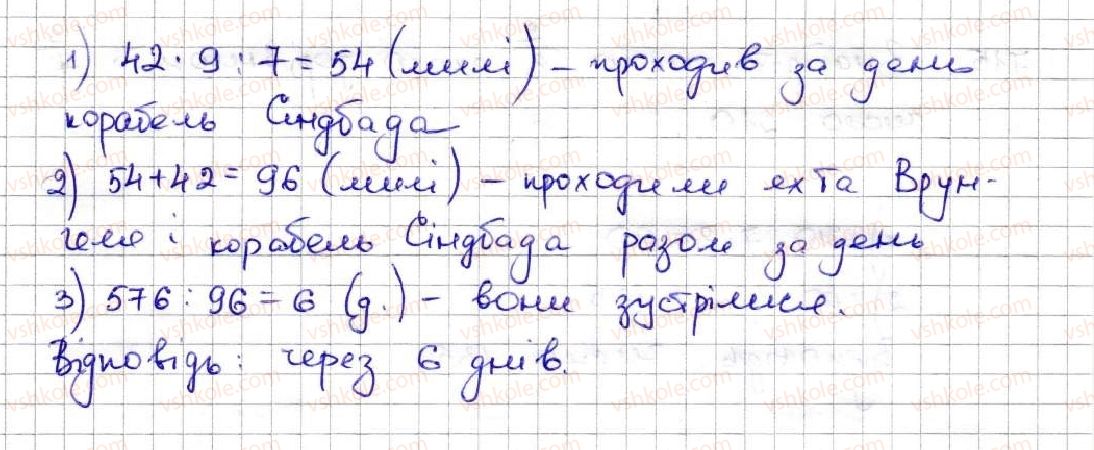 1) 42 · 9 : 7 = 54 (милі) – проходив за день
корабель Сіндбада
2) 54 + 42 = 96 (милі) – проходили яхта Врун-
геля і корабель Сіндбада разом за день
3) 576 : 96 = 6 (д.) – вони зустрілися.
Відповідь: через 6 днів.